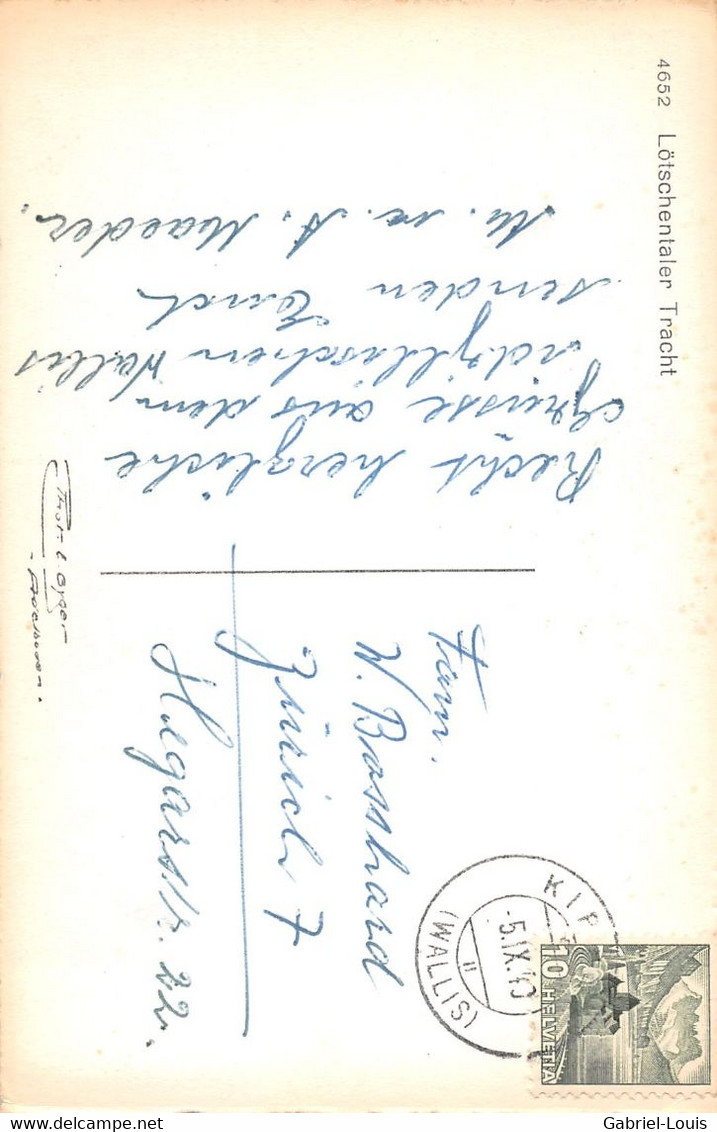 4652 Lötschentaler Tracht
Recht herzliche
Grüsse aus dem
idyllischen Wallis
senden Euch
M. u. A. Maeder.
Fam.
W. Bosshard
Zürich 7
Str. 22.
KIP
(WALLIS)
-5.IX.40
10 HELVETIA
Gabriel-Louis